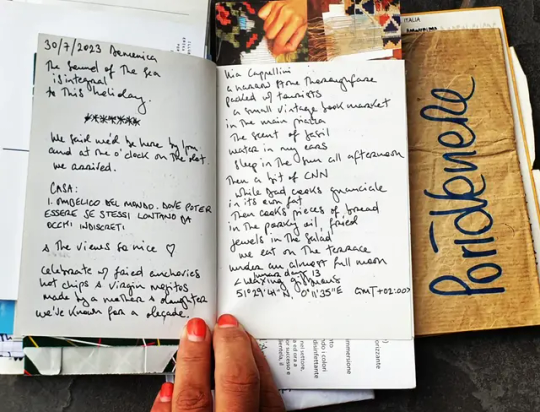 30/7/2023 Domenica
The Sound of The Sea
is integral
to This holiday.
*******
We said we'd be here by 1pm
and at the o'clock on The dot
we arrived.
CASA:
1. OMBELICO DEL MONDO. DOVE POTER
ESSERE SE STESSI LONTANO DA
OCCHI INDISCRETI
& The views so nice ♡
Celebrate w/ fried anchovies
hot chips & virgin mojitos
made by a mother & daughter
we've known for a decade.
Via Cappellini
a narrow stone Thoroughfare
packed w/ tourists
a small vintage book market
in the main piazza
The scent of basil
water in my ears
sleep in the sun all afternoon
Then a bit of CNN
while Dad cooks guanciale
in its own fat
Then cooks pieces of bread
in the porky oil, fried
jewels in the salad
we eat on the terrace
under an almost full moon
lunar day 13
< Waxing gibbous
51°29'41"N, 0°11'35"E GMT+02:00>
ITALIA